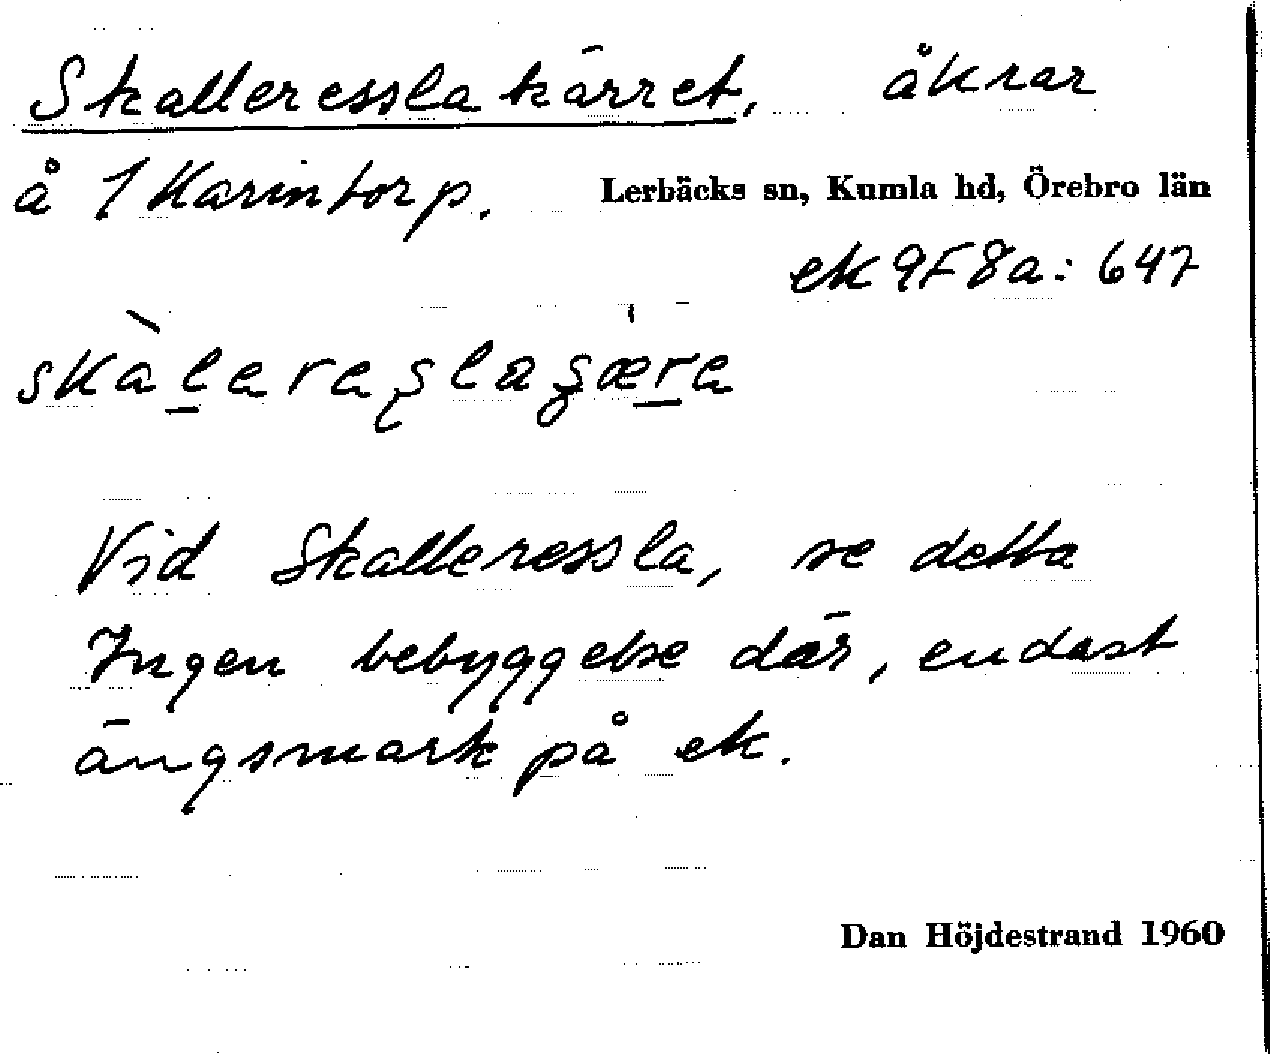 Skalleresslakärret, åkrar
å 1 Karintorp. Lerbäcks sn, Kumla hd, Örebro län
ek 9F8a: 647
Vid Skalleressla, se detta
Ingen bebyggelse där, endast
ängsmark på ek.
Dan Höjdestrand 1960